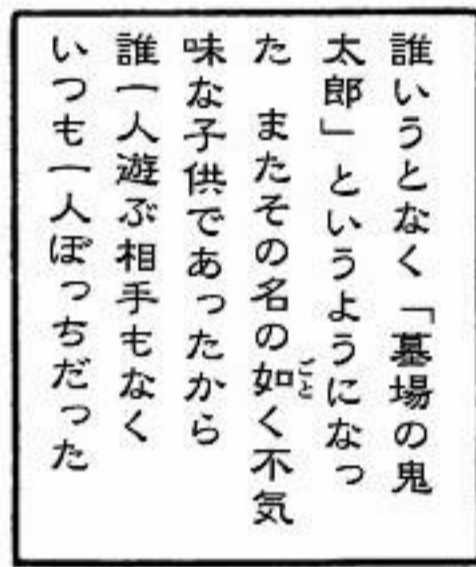 誰いうとなく「墓場の鬼
太郎」というようになっ
た　またその名の如く不気
味な子供であったから
誰一人遊ぶ相手もなく
いつも一人ぼっちだった
ごと